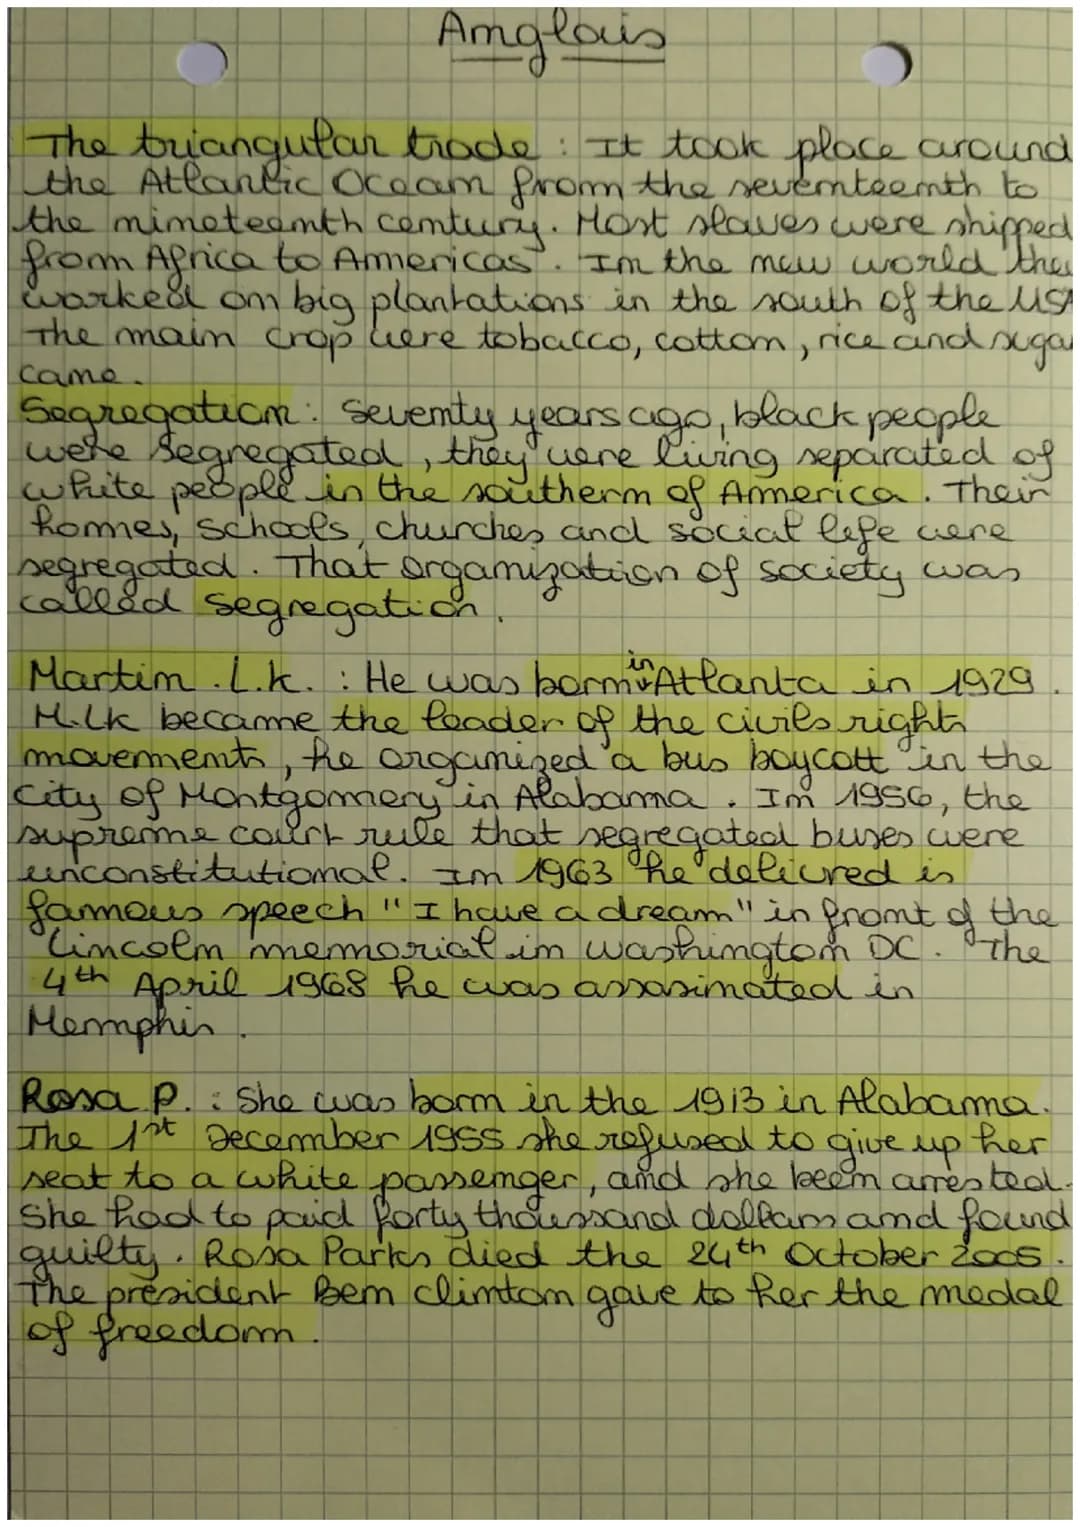 Anglais
The triangular trade : It took place around
the Atlantic Ocean from the seventeenth to
the nineteenth century. Most slaves were shipped
from Africa to Americas. In the new world they
worked on big plantations in the south of the USA
The main crop were tobacco, cotton, rice and sugar
cane.
Segregation : Seventy years ago, black people
were segregated, they were living separated of
white people in the southern of America. Their
homes, schools, churches and social life were
segregated. That organization of society was
called segregation.
Martin .L.K. : He was born in Atlanta in 1929.
M.LK became the leader of the civils rights
movements, he organized a bus boycott in the
city of Montgomery in Alabama. In 1956, the
supreme court rule that segregated buses were
unconstitutional. In 1963 he delivred is
famous speech "I have a dream" in front of the
Lincoln memorial in washington DC. The
4th April 1968 he was assasinated in
Memphis.
Rosa P. : She was born in the 1913 in Alabama.
The 1st December 1955 she refused to give up her
seat to a white passenger, and she been arrested.
She had to paid forty thoussand dollars and found
guilty. Rosa Parks died the 24th October 2005.
The president Ben clinton gave to her the medal
of freedom.